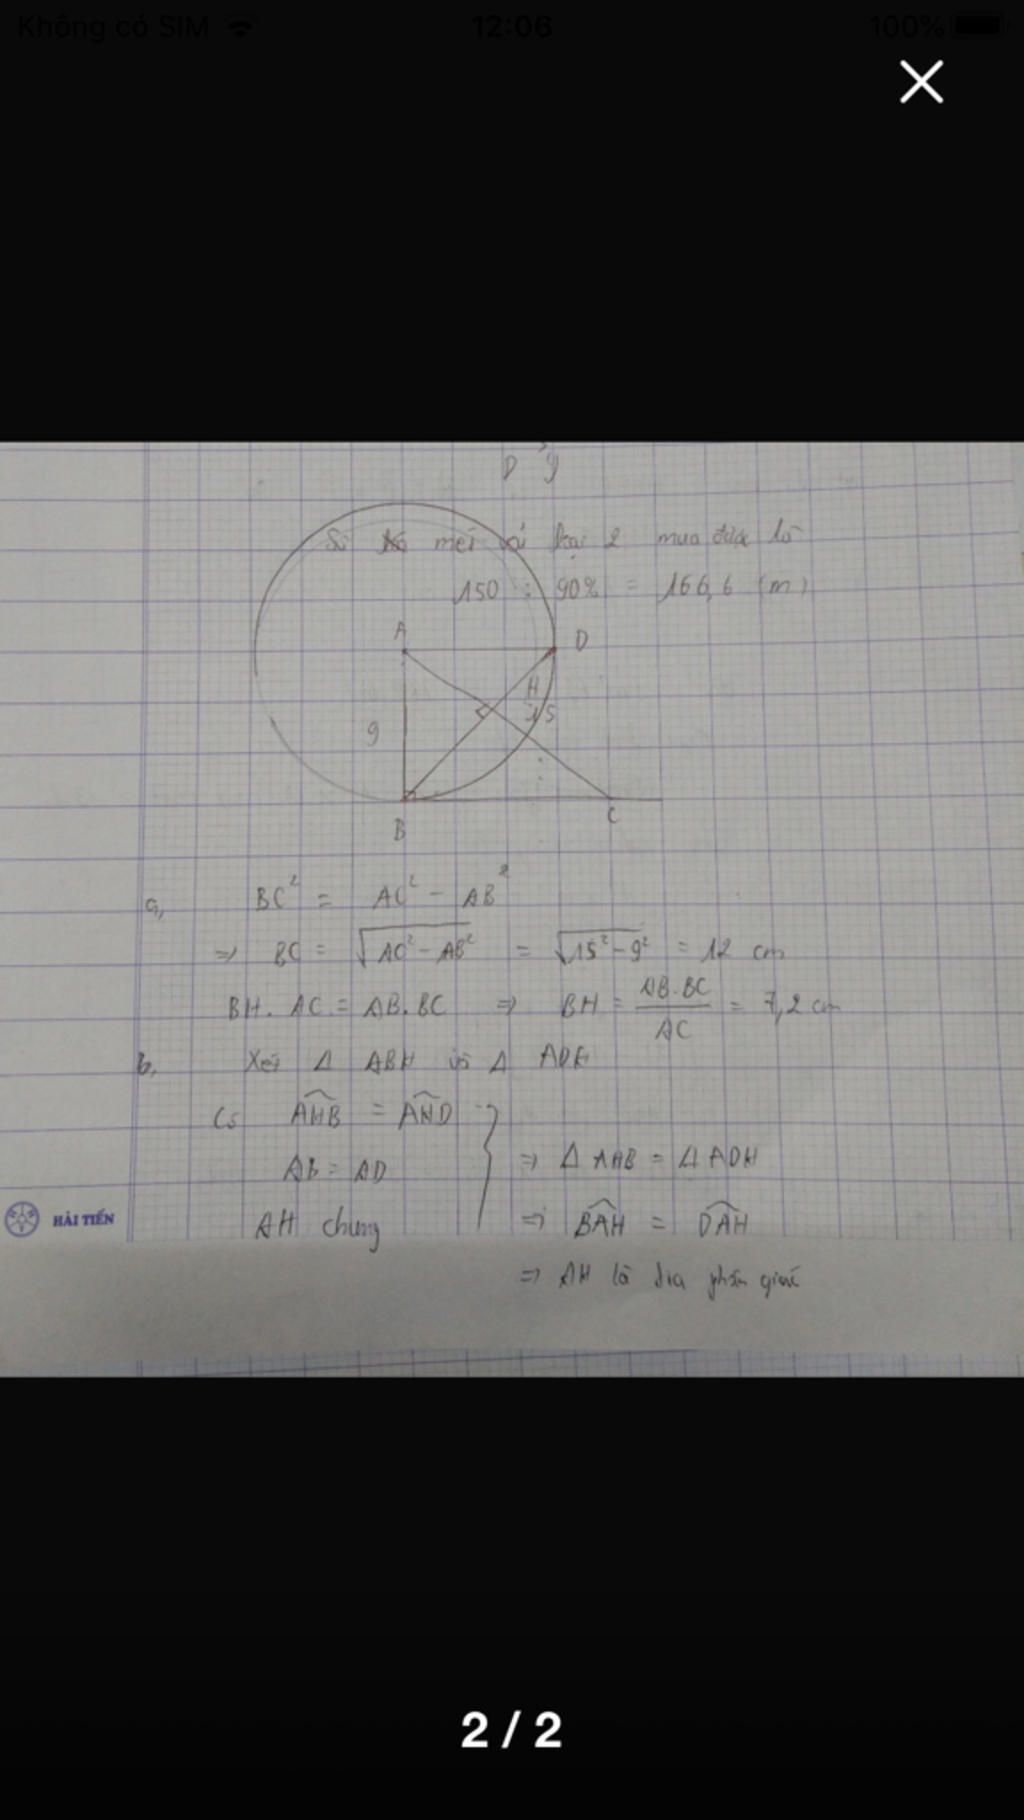 Không có SIM 12:06 100%
D 9
Số mét vải loại 2 mua được là
150 : 90% = 166,6 (m)
A D
H
9 15
B C
a, BC² = AC² - AB²
=> BC = √AC² - AB² = √15² - 9² = 12 cm
BH. AC = AB. BC => BH = AB.BC / AC = 7,2 cm
b, Xét Δ ABH và Δ ADH
Có AHB = AHD
AB = AD => Δ AHB = Δ ADH
AH chung => BAH = DAH
=> AH là tia phân giác
HẢI TIẾN
2 / 2